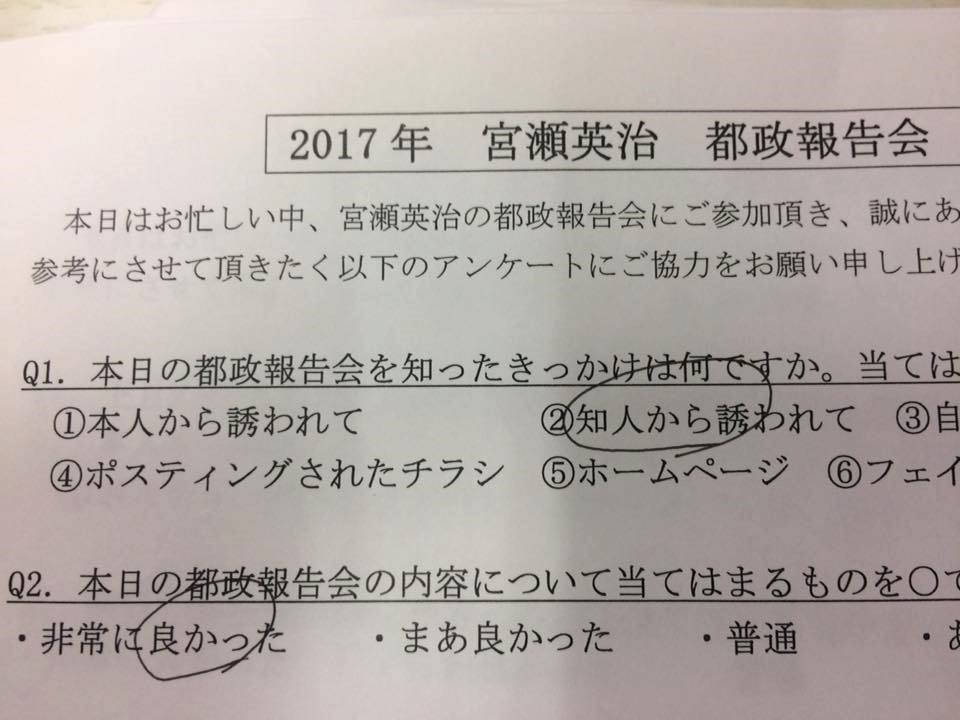 2017年　宮瀬英治　都政報告会
本日はお忙しい中、宮瀬英治の都政報告会にご参加頂き、誠にあ
参考にさせて頂きたく以下のアンケートにご協力をお願い申し上げ
Q1. 本日の都政報告会を知ったきっかけは何ですか。当ては
①本人から誘われて　②知人から誘われて　③自
④ポスティングされたチラシ　⑤ホームページ　⑥フェイ
Q2. 本日の都政報告会の内容について当てはまるものを〇で
・非常に良かった　・まあ良かった　・普通　・あ